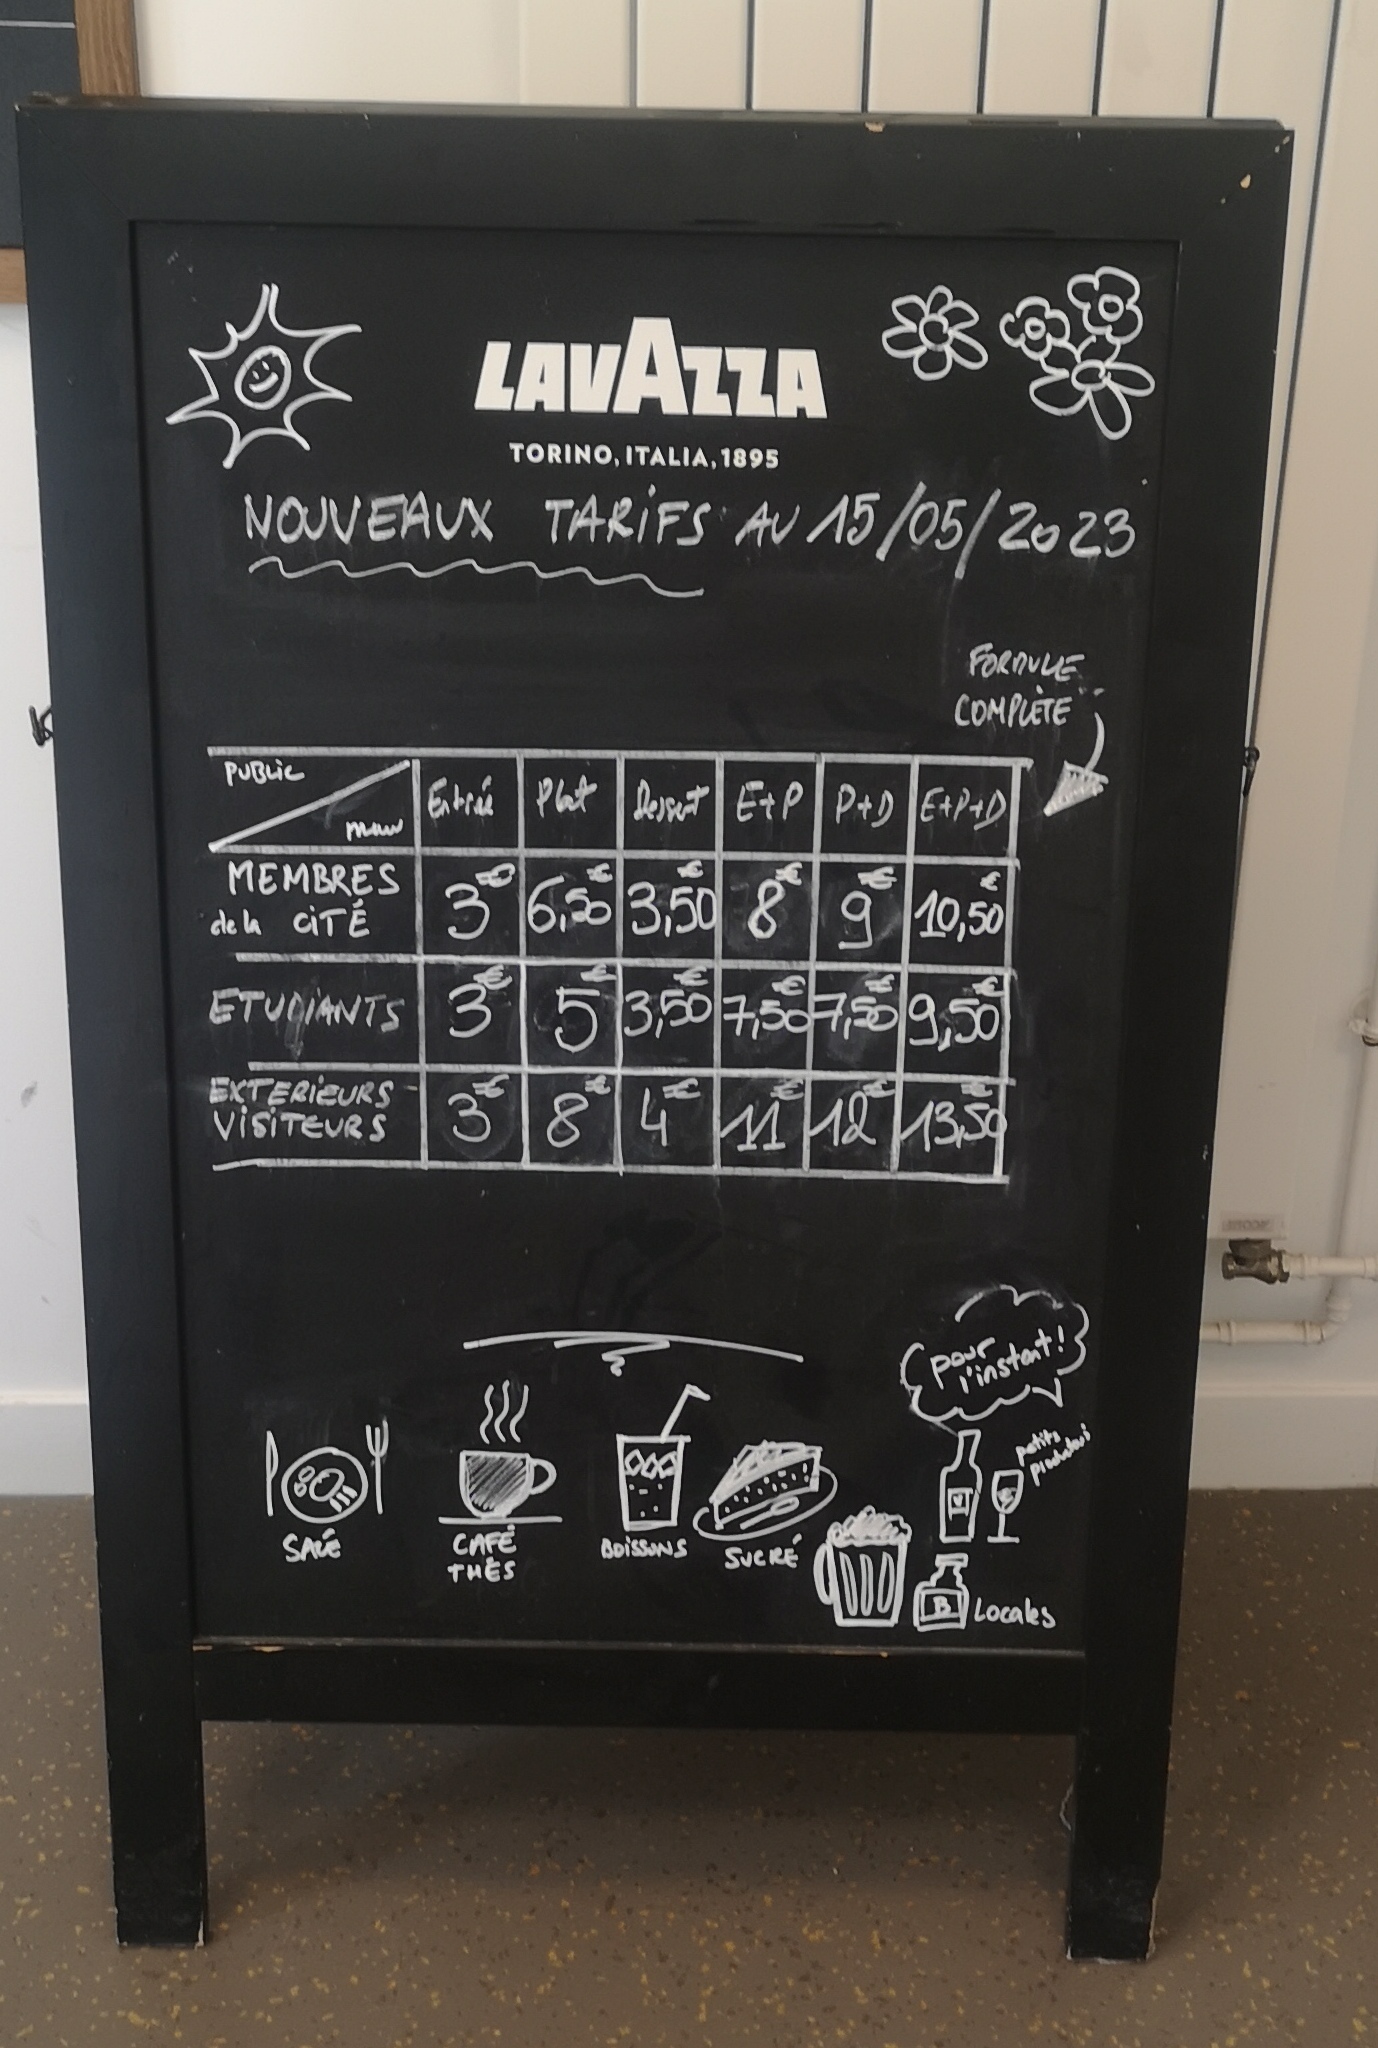 LAVAZZA
TORINO, ITALIA, 1895
NOUVEAUX TARIFS AU 15/05/2023
FORMULE
COMPLÈTE
PUBLIC
menu
Entrée Plat Dessert E+P P+D E+P+D
MEMBRES
de la CITÉ
3€ 6,50€ 3,50€ 8€ 9€ 10,50€
ETUDIANTS 3€ 5€ 3,50€ 7,50€ 7,50€ 9,50€
EXTERIEURS-
VISITEURS
3€ 8€ 4€ 11€ 12€ 13,50€
pour
l'instant!
petits
SALÉ
CAFÉ
THÉS
BOISSONS
SUCRÉ
V
B
Locales